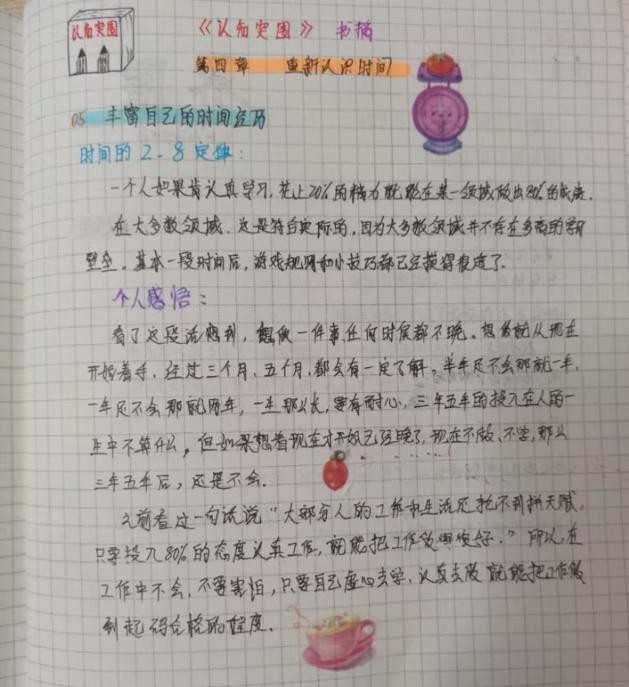 认知突围
《认知突围》 书摘
第四章 重新认识时间
05 丰富自己的时间经历
时间的2-8定律:
一个人如果肯认真学习,花上20%的精力就能在某一领域做出80%的成度.
在大多数领域,这是符合实际的,因为大多数领域并不存在多高的学习
壁垒,基本一段时间后,游戏规则和小技巧都已经摸得很透了.
个人感悟:
看了这段话想到,想做一件事任何时候都不晚.想做就从现在
开始着手,经过三个月、五个月,都会有一定了解,半年还不会那就一年,
一年还不会那就两年,一生那么长,要有耐心,三年五年的投入在人的一
生中不算什么,但如果想着现在才开始已经晚了,现在不做、不学,那么
三年五年后,还是不会.
之前看过一句话说"大部分人的工作和生活还轮不到拼天赋,
只要投入80%的态度认真工作,就能把工作做得很好."所以,在
工作中不会,不要害怕,只要自己虚心去学,认真去做就能把工作做
到起码合格的程度.